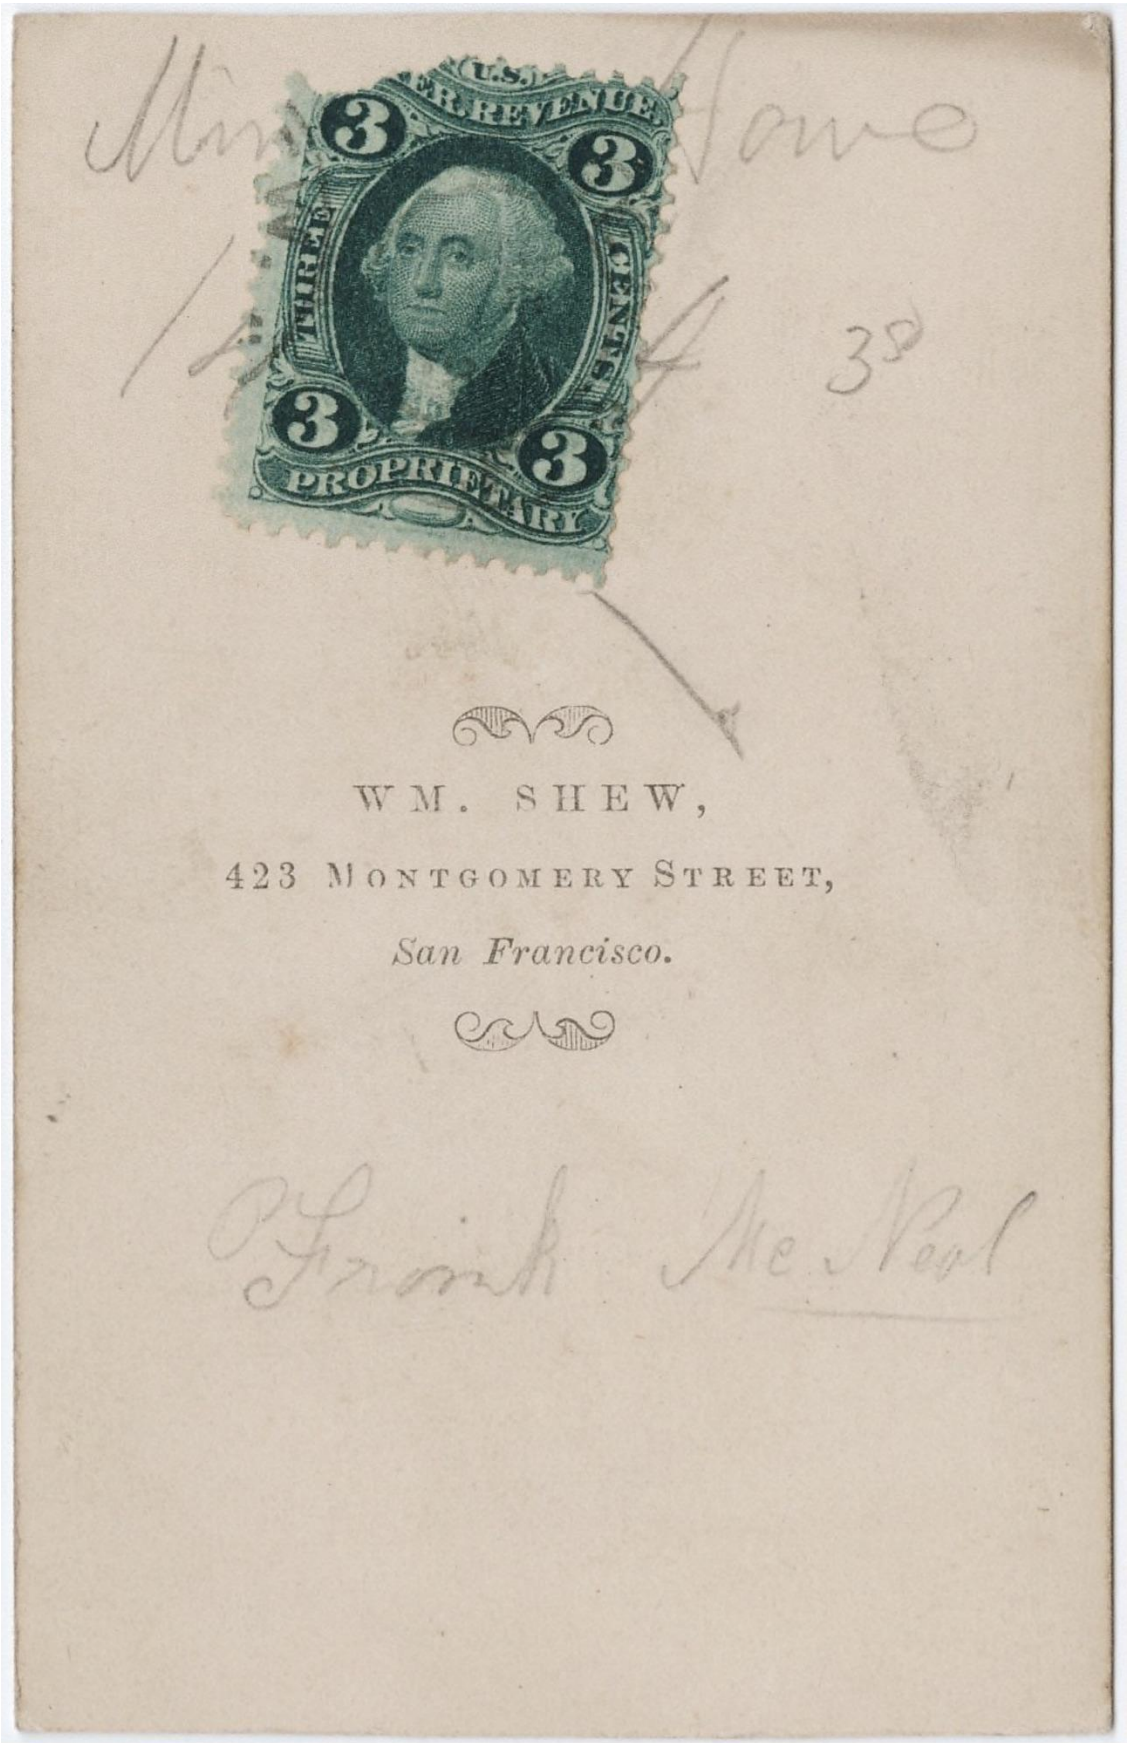 U.S.
ER. REVENUE.
3 3
THREE CENTS.
3 3
PROPRIETARY
30
WM. SHEW,
423 MONTGOMERY STREET,
San Francisco.
Frank McNeal